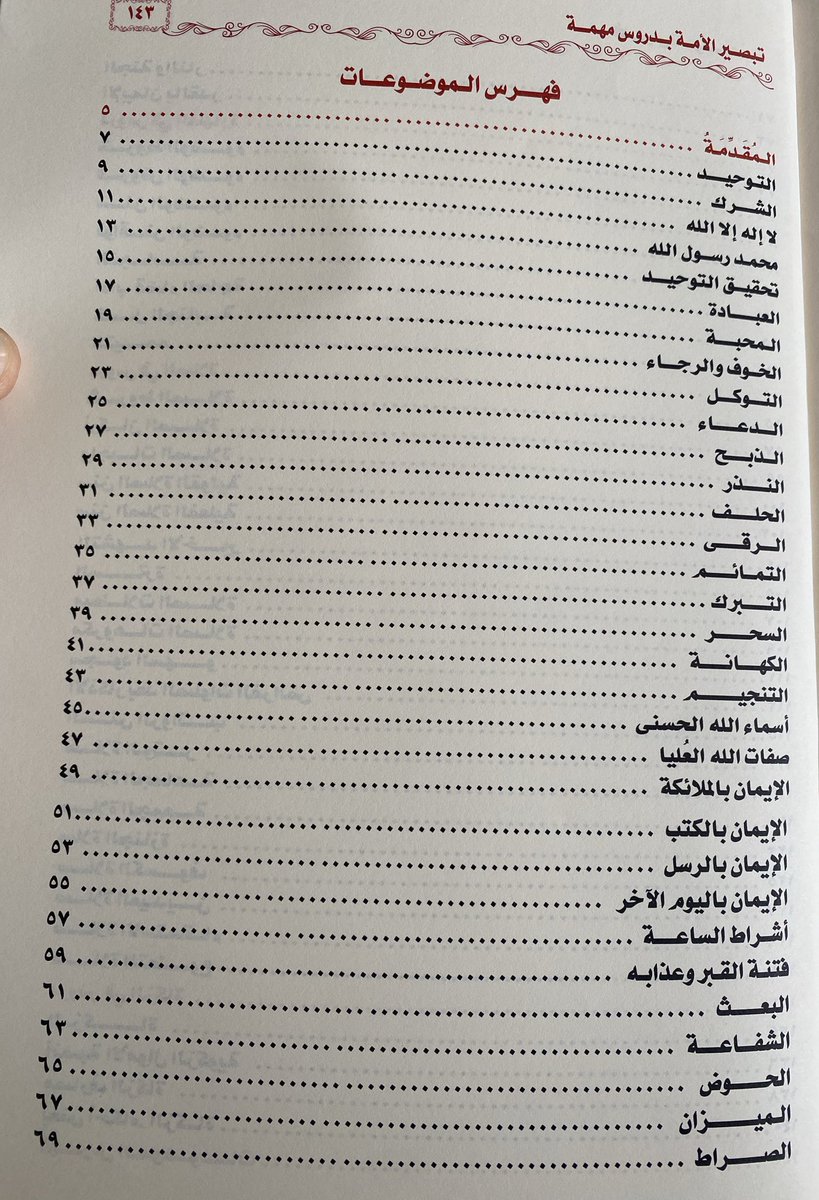 تبصير الأمة بدروس مهمة ١٤٣
فهرس الموضوعات
المُقَدِّمَةُ ٥
التوحيد ٧
الشرك ٩
لا إله إلا الله ١١
محمد رسول الله ١٣
تحقيق التوحيد ١٥
العبادة ١٧
المحبة ١٩
الخوف والرجاء ٢١
التوكل ٢٣
الدعاء ٢٥
الذبح ٢٧
النذر ٢٩
الحلف ٣١
الرقى ٣٣
التمائم ٣٥
التبرك ٣٧
السحر ٣٩
الكهانة ٤١
التنجيم ٤٣
أسماء الله الحسنى ٤٥
صفات الله العُليا ٤٧
الإيمان بالملائكة ٤٩
الإيمان بالكتب ٥١
الإيمان بالرسل ٥٣
الإيمان باليوم الآخر ٥٥
أشراط الساعة ٥٧
فتنة القبر وعذابه ٥٩
البعث ٦١
الشفاعة ٦٣
الحوض ٦٥
الميزان ٦٧
الصراط ٦٩